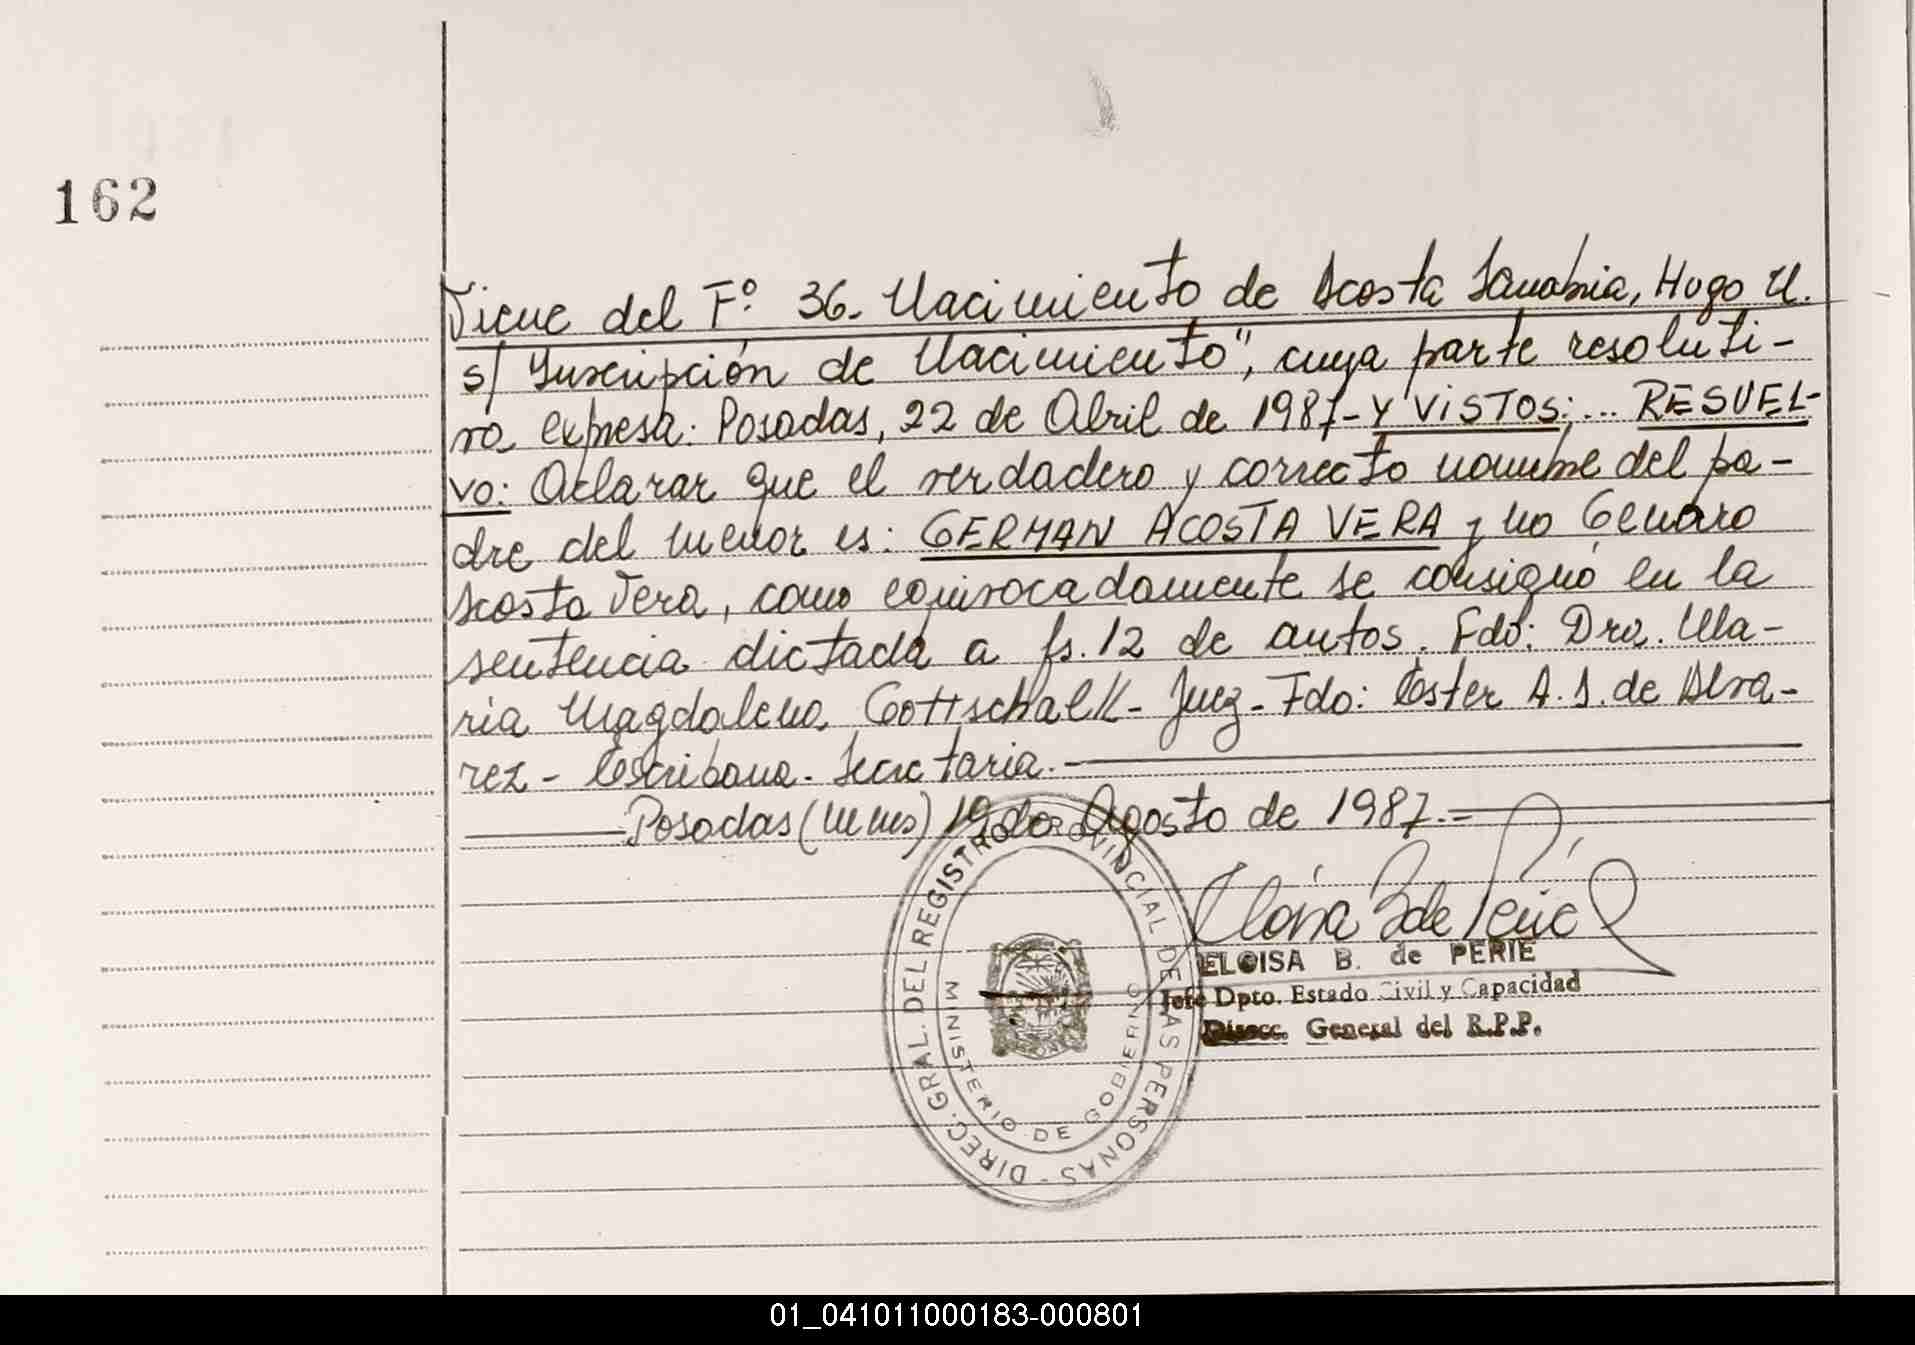 162
Viene del F.º 36. Nacimiento de Acosta Sanabria, Hugo N.
s/ Inscripción de Nacimiento", cuya parte resoluti-
va expresa: Posadas, 22 de Abril de 1987- Y VISTOS:... RESUEL-
VO: Aclarar que el verdadero y correcto nombre del pa-
dre del menor es: GERMAN ACOSTA VERA y no Genaro
Acosta Vera, como equivocadamente se consignó en la
sentencia dictada a fs. 12 de autos. Fdo: Dra. Ma-
ria Magdalena Gottschalk- Juez- Fdo: Ester A. S. de Alva-
rez- Escribana. Secretaria.-
Posadas (Mnes) 19 de Agosto de 1987.-
Eloisa B de Perié
ELOISA B. de PERIE
Jefe Dpto. Estado Civil y Capacidad
Direcc. General del R.P.P.
DIREC. GRAL. DEL REGISTRO PROVINCIAL DE LAS PERSONAS -
MINISTERIO DE GOBIERNO
01_041011000183-000801